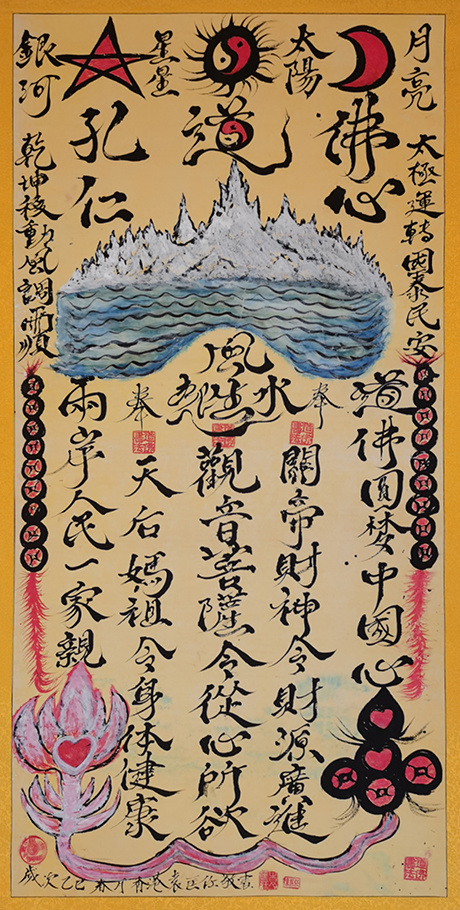 月亮
太陽
星星
銀河
佛心
道
孔仁
太極運轉國泰民安
乾坤移動風調雨順
風水
道佛圓梦中國心
奉
關帝財神令財源廣進
觀音菩薩令從心所欲
奉
天后媽祖令身体健康
兩岸人民一家親
歲次乙巳春月香港袁